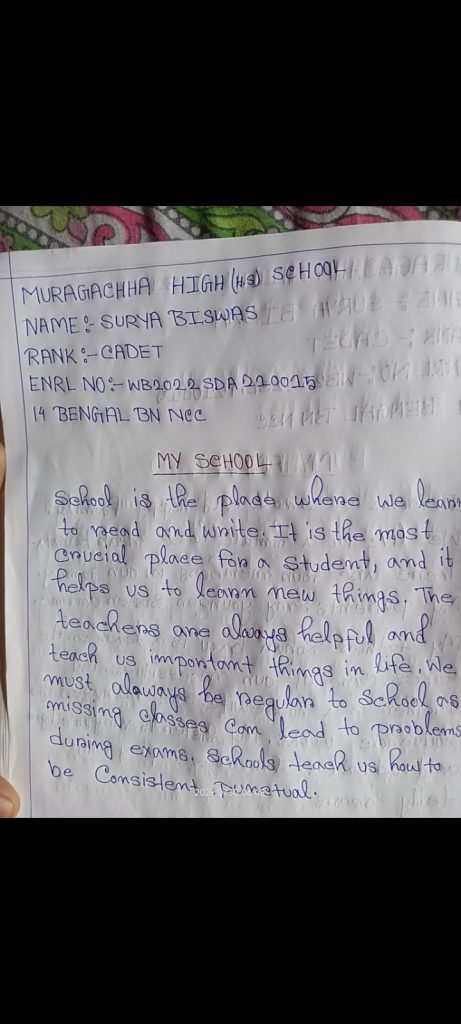 MURAGACHHA HIGH (HS) SCHOOL
NAME :- SURYA BISWAS
RANK :- CADET
ENRL NO :- WB2022SDA220015
14 BENGAL BN NCC
MY SCHOOL
School is the place where we learn
to read and write. It is the most
crucial place for a student, and it
helps us to learn new things. The
teachers are always helpful and
teach us important things in life. We
must alaways be regular to School as
missing classes can lead to problems
during exams. Schools teach us how to
be Consistent Punctual.